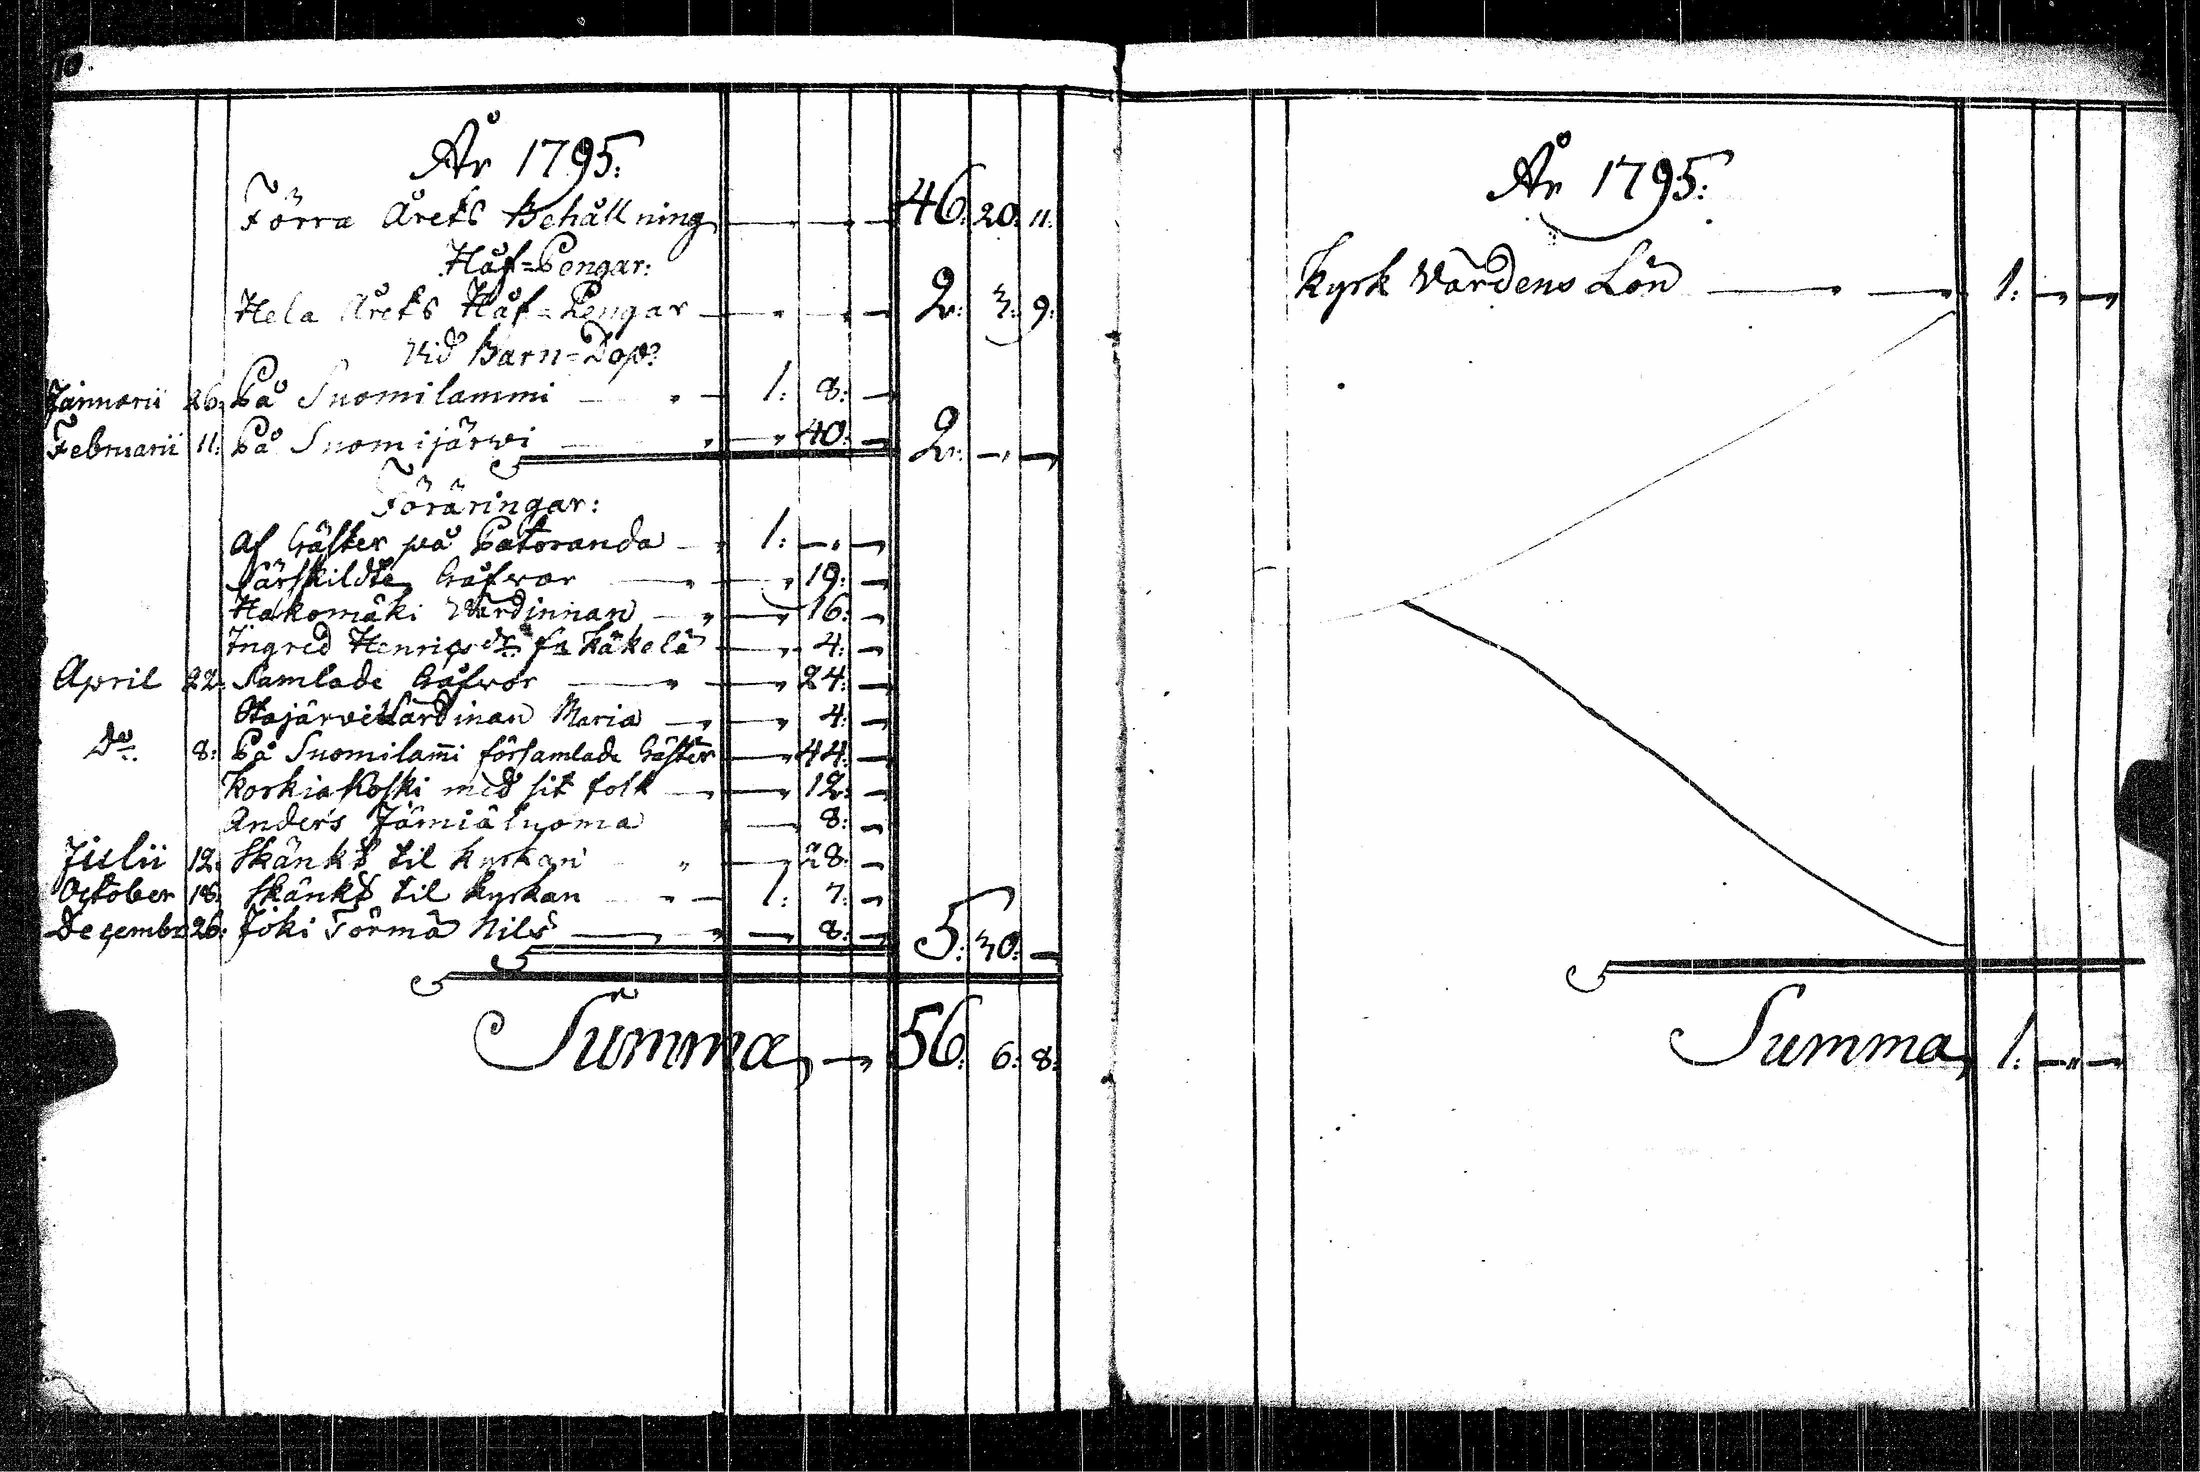 10.
År 1795:
Förra Årets Behållning — 46: 20: 11:
Håf=Pengar:
Hela Årets Håf=Pengar — 2: 3: 9:
Vid Barn=Dop:
Januarii 26: På Suomilammi — 1: 8: —
Februarii 11: På Suomijärwi — 40: — 2: — —
Föräringar:
Af Gäster på Patoranda — 1: — —
Särskildta Gåfwor — 19: —
Hakomäki Wärdinnan — 16: —
Ingred Henricsdr fr Käkelä — 4: —
April 22: Samlade Gåfwor — 24: —
Otajärwi Wärdinan Maria — 4: —
Do. 8: På Suomilam̄i församlade Gäster — 44: —
Korkiakoski med sit folk — 12: —
Anders Jämiäluoma — 8: —
Julii 12: Skänkt til kyrkan — 28: —
October 18: Skänkt til kyrkan — 1: 7: —
Decembr 26: Joki Törmä Nils — 8: — 5: 30: —
Summa, — 56: 6: 8:
År 1795:
Kyrk Värdens Lön — 1: — —
Summa, 1: — —